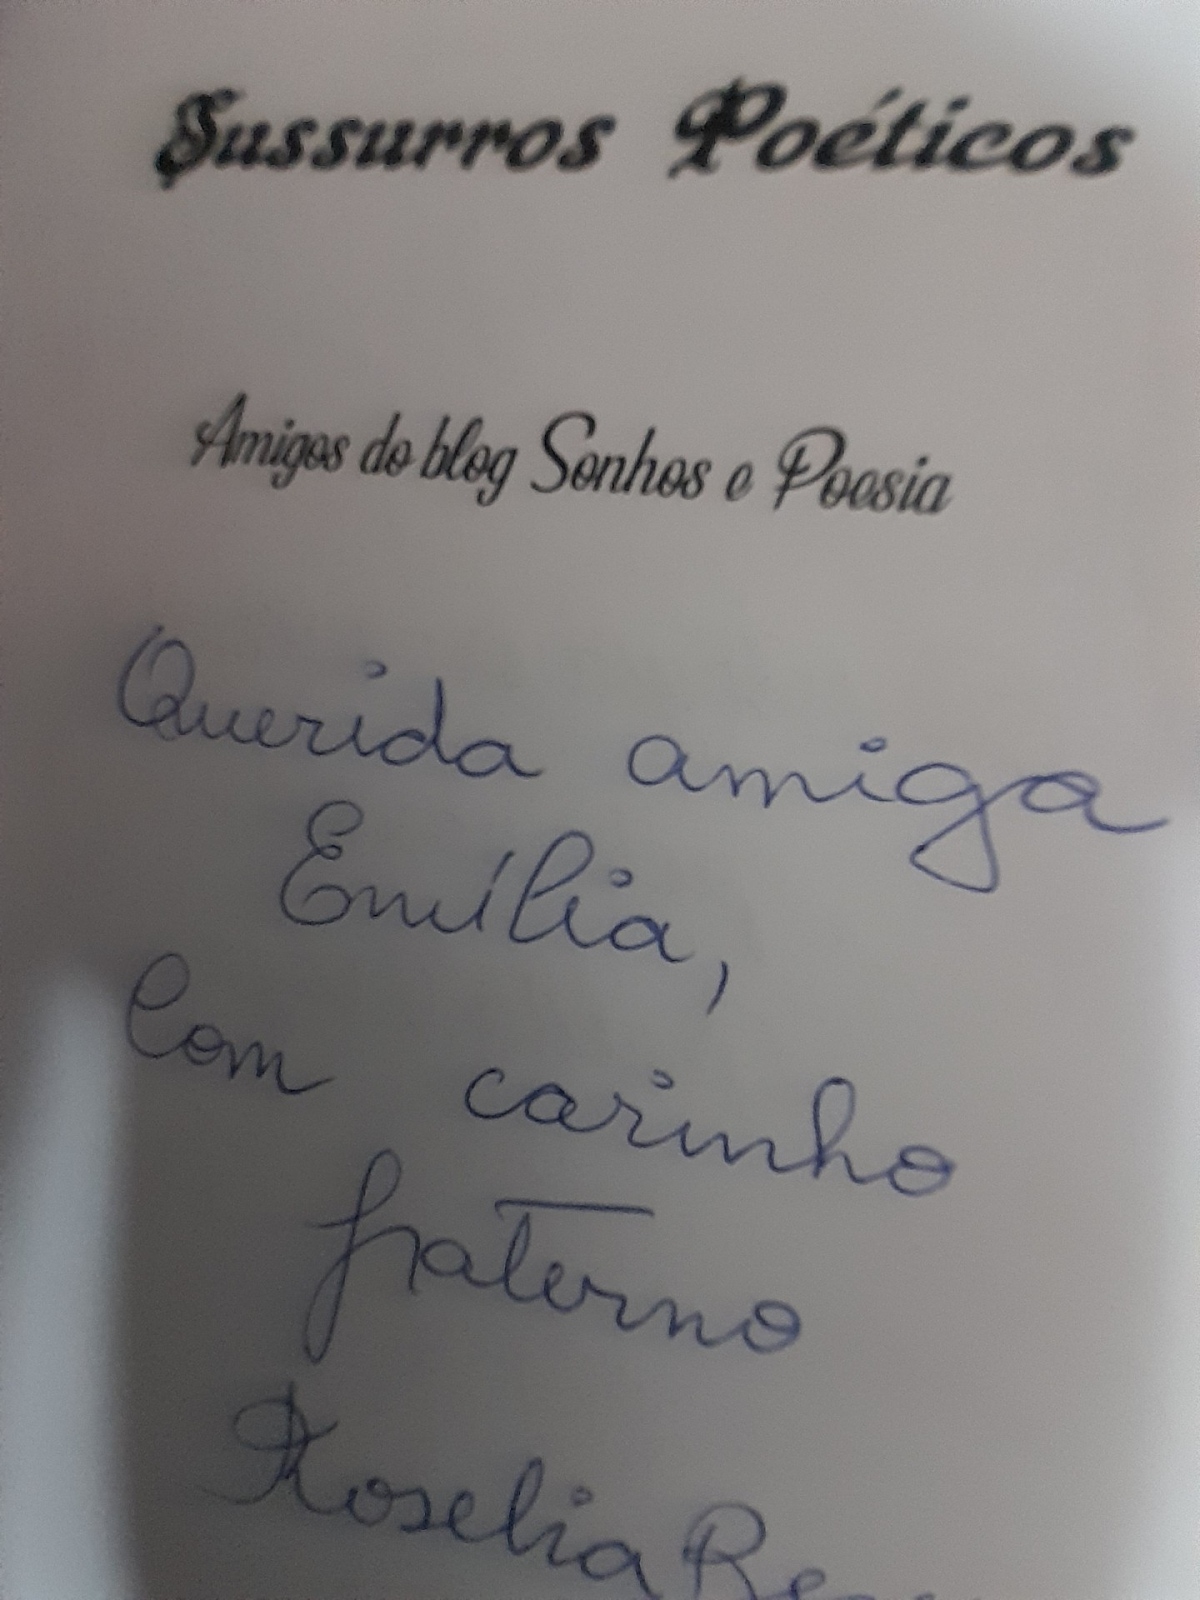 Sussurros Poéticos
Amigos do blog Sonhos e Poesia
Querida amiga
Emília,
Com carinho
fraterno
Roselia